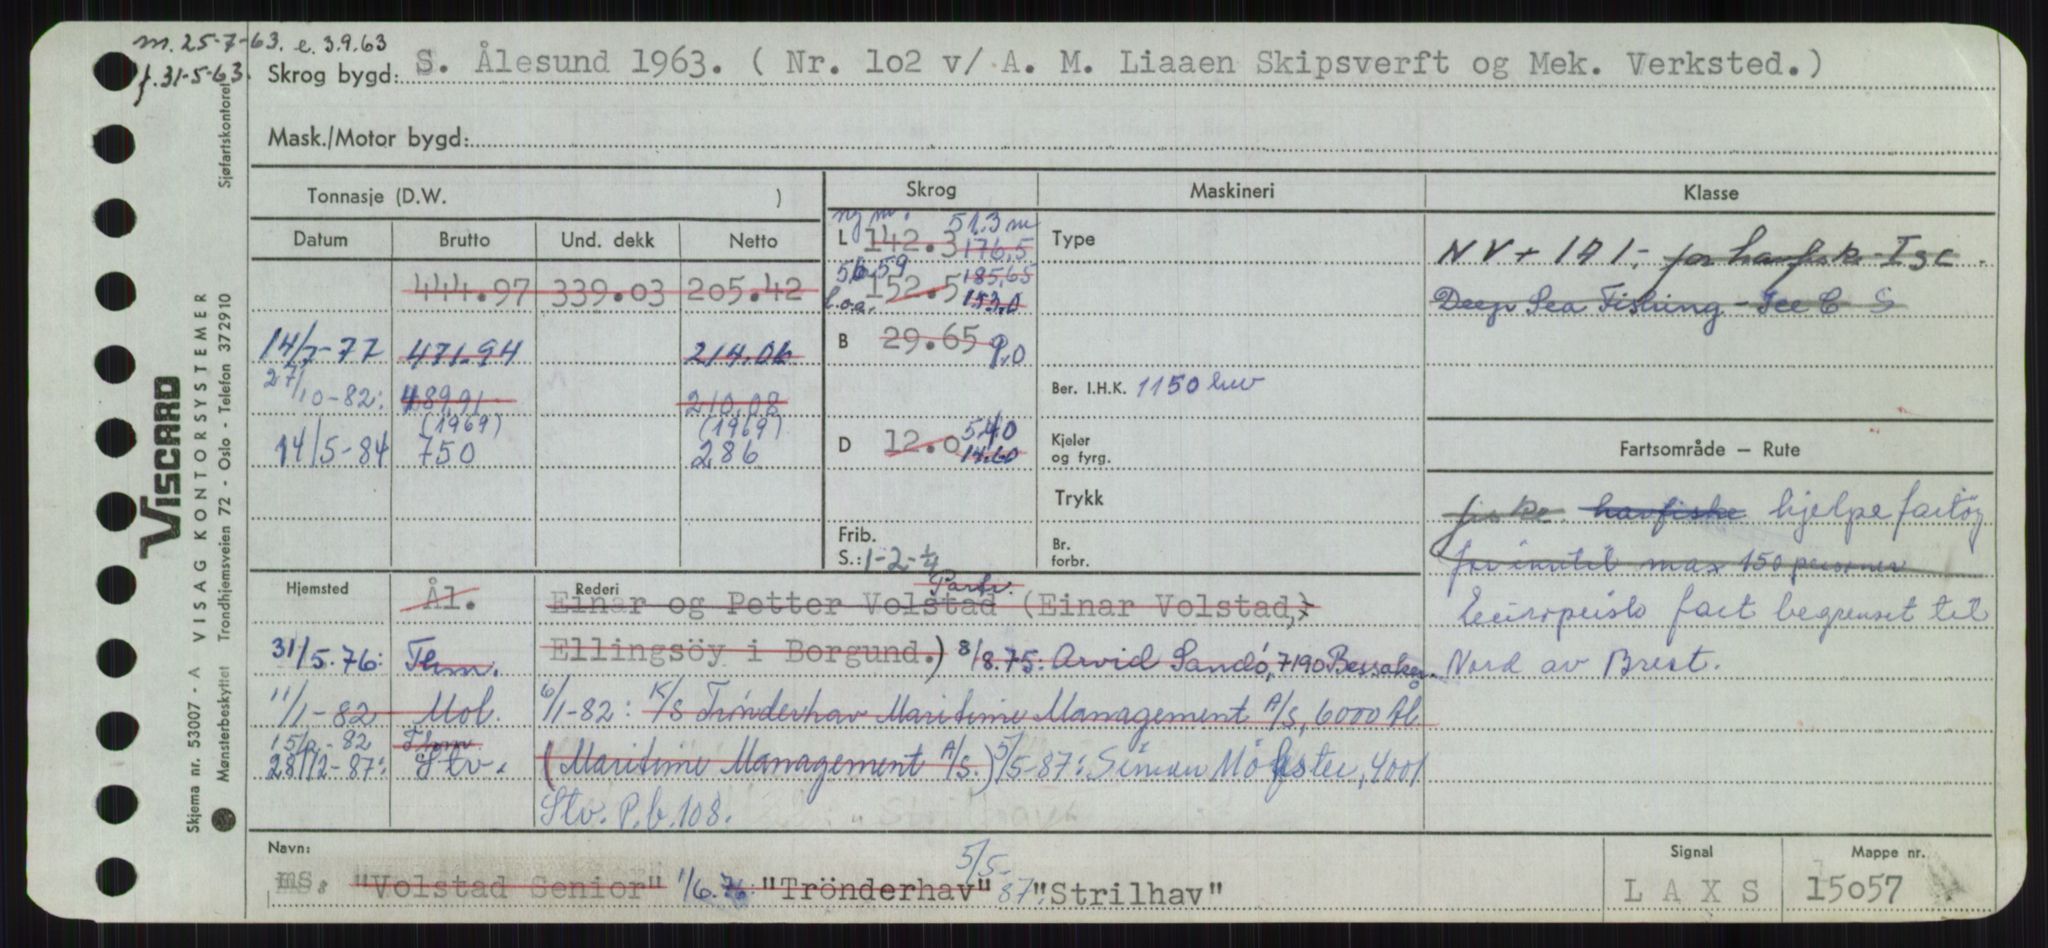 m. 25-7-63. e. 3.9.63
f. 31-5-63.
Skrog bygd: S. Ålesund 1963. ( Nr. 1o2 v/ A. M. Liaaen Skipsverft og Mek. Verksted.)
Mask./Motor bygd:
Tonnasje (D.W. )
Skrog
Maskineri
Klasse
Datum Brutto Und. dekk Netto
ny m. 51.3 m
L 142.3 176,5
Type
444.97 339.03 205.42
56.59 185,65
l.o.a. 152.5 153,0
14/7-77 471.94 214.06
B 29.65 9,0
27/10-82: 489,91 210,08
Ber. I.H.K. 1150 hw
(1969) (1969)
14/5-84 750 286
D 12.0 5,40
14.60
Kjeler
og fyrg.
Trykk
Frib.
S.: 1-2-¼
Br.
forbr.
NV + 1A1. for havfiske Is C.
Deep Sea Fishing - Ice C S
Fartsområde — Rute
fiske. havfiske hjelpefartöy
for inntil max 150 personer
Europeisk fart begrenset til
Nord av Brest.
Hjemsted
Rederi
Partr.
Ål. Einar og Petter Volstad (Einar Volstad,
31/5.76: Thm. Ellingsöy i Borgund.) 8/8.75: Arvid Sandö, 7190 Bessaker.
11/1-82 Mol. 6/1-82: K/S Trönderhav Maritime Management A/S, 6000 Ål.
15/2-82 Thm
28/12-87: Stv. (Maritime Management A/S.) 5/5-87: Simon Mökster, 4001
Stv. P.b. 108.
Navn:
ms. "Volstad Senior" 1/6.76: "Trönderhav" 5/5-87: "Strilhav"
Signal
L A X S
Mappe nr.
15o57
Sjøfartskontoret
VISCARD
VISAG KONTORSYSTEMER
Trondhjemsveien 72 - Oslo - Telefon 372910
Skjema nr. 53007 - A
Mønsterbeskyttet